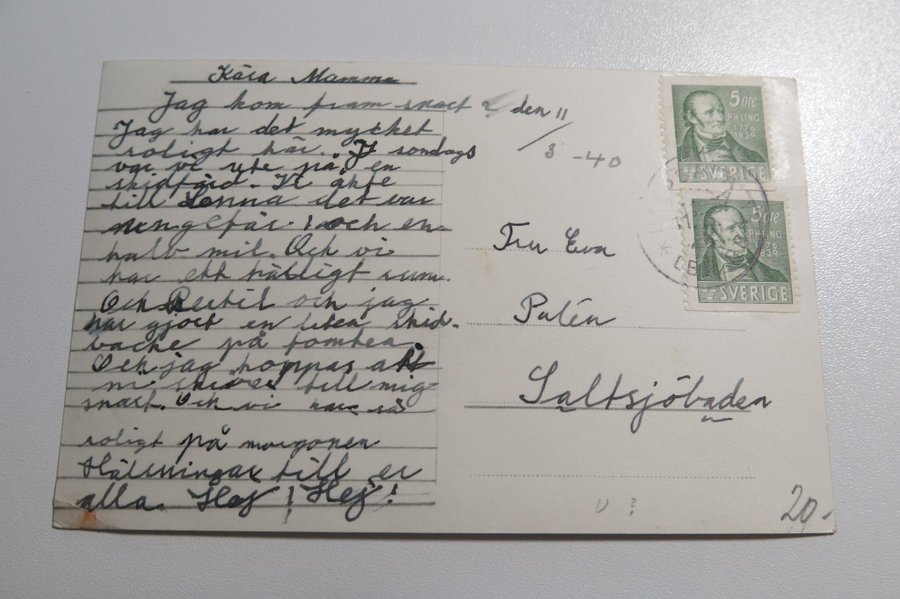 Kära Mamma
Jag kom fram snart den 11
/3 -40
Jag har det mycket
roligt här. I söndags
var vi ute på en
skidfärd. Vi åkte
till Lenna det var
ungefär 1 och en
halv mil. Och vi
har ett härligt rum.
Och Bertil och jag
har gjort en liten skid-
backe på tomten
Och jag hoppas att
ni skriver till mig
snart. Och vi har så
roligt på morgonen
Hälsningar till er
alla. Hej! Hej!
Fru Eva
Palén
Saltsjöbaden
5 ÖRE
PH LING
1778
1839
SVERIGE
5 ÖRE
PH LING
1778
1839
SVERIGE
U ?
20.-